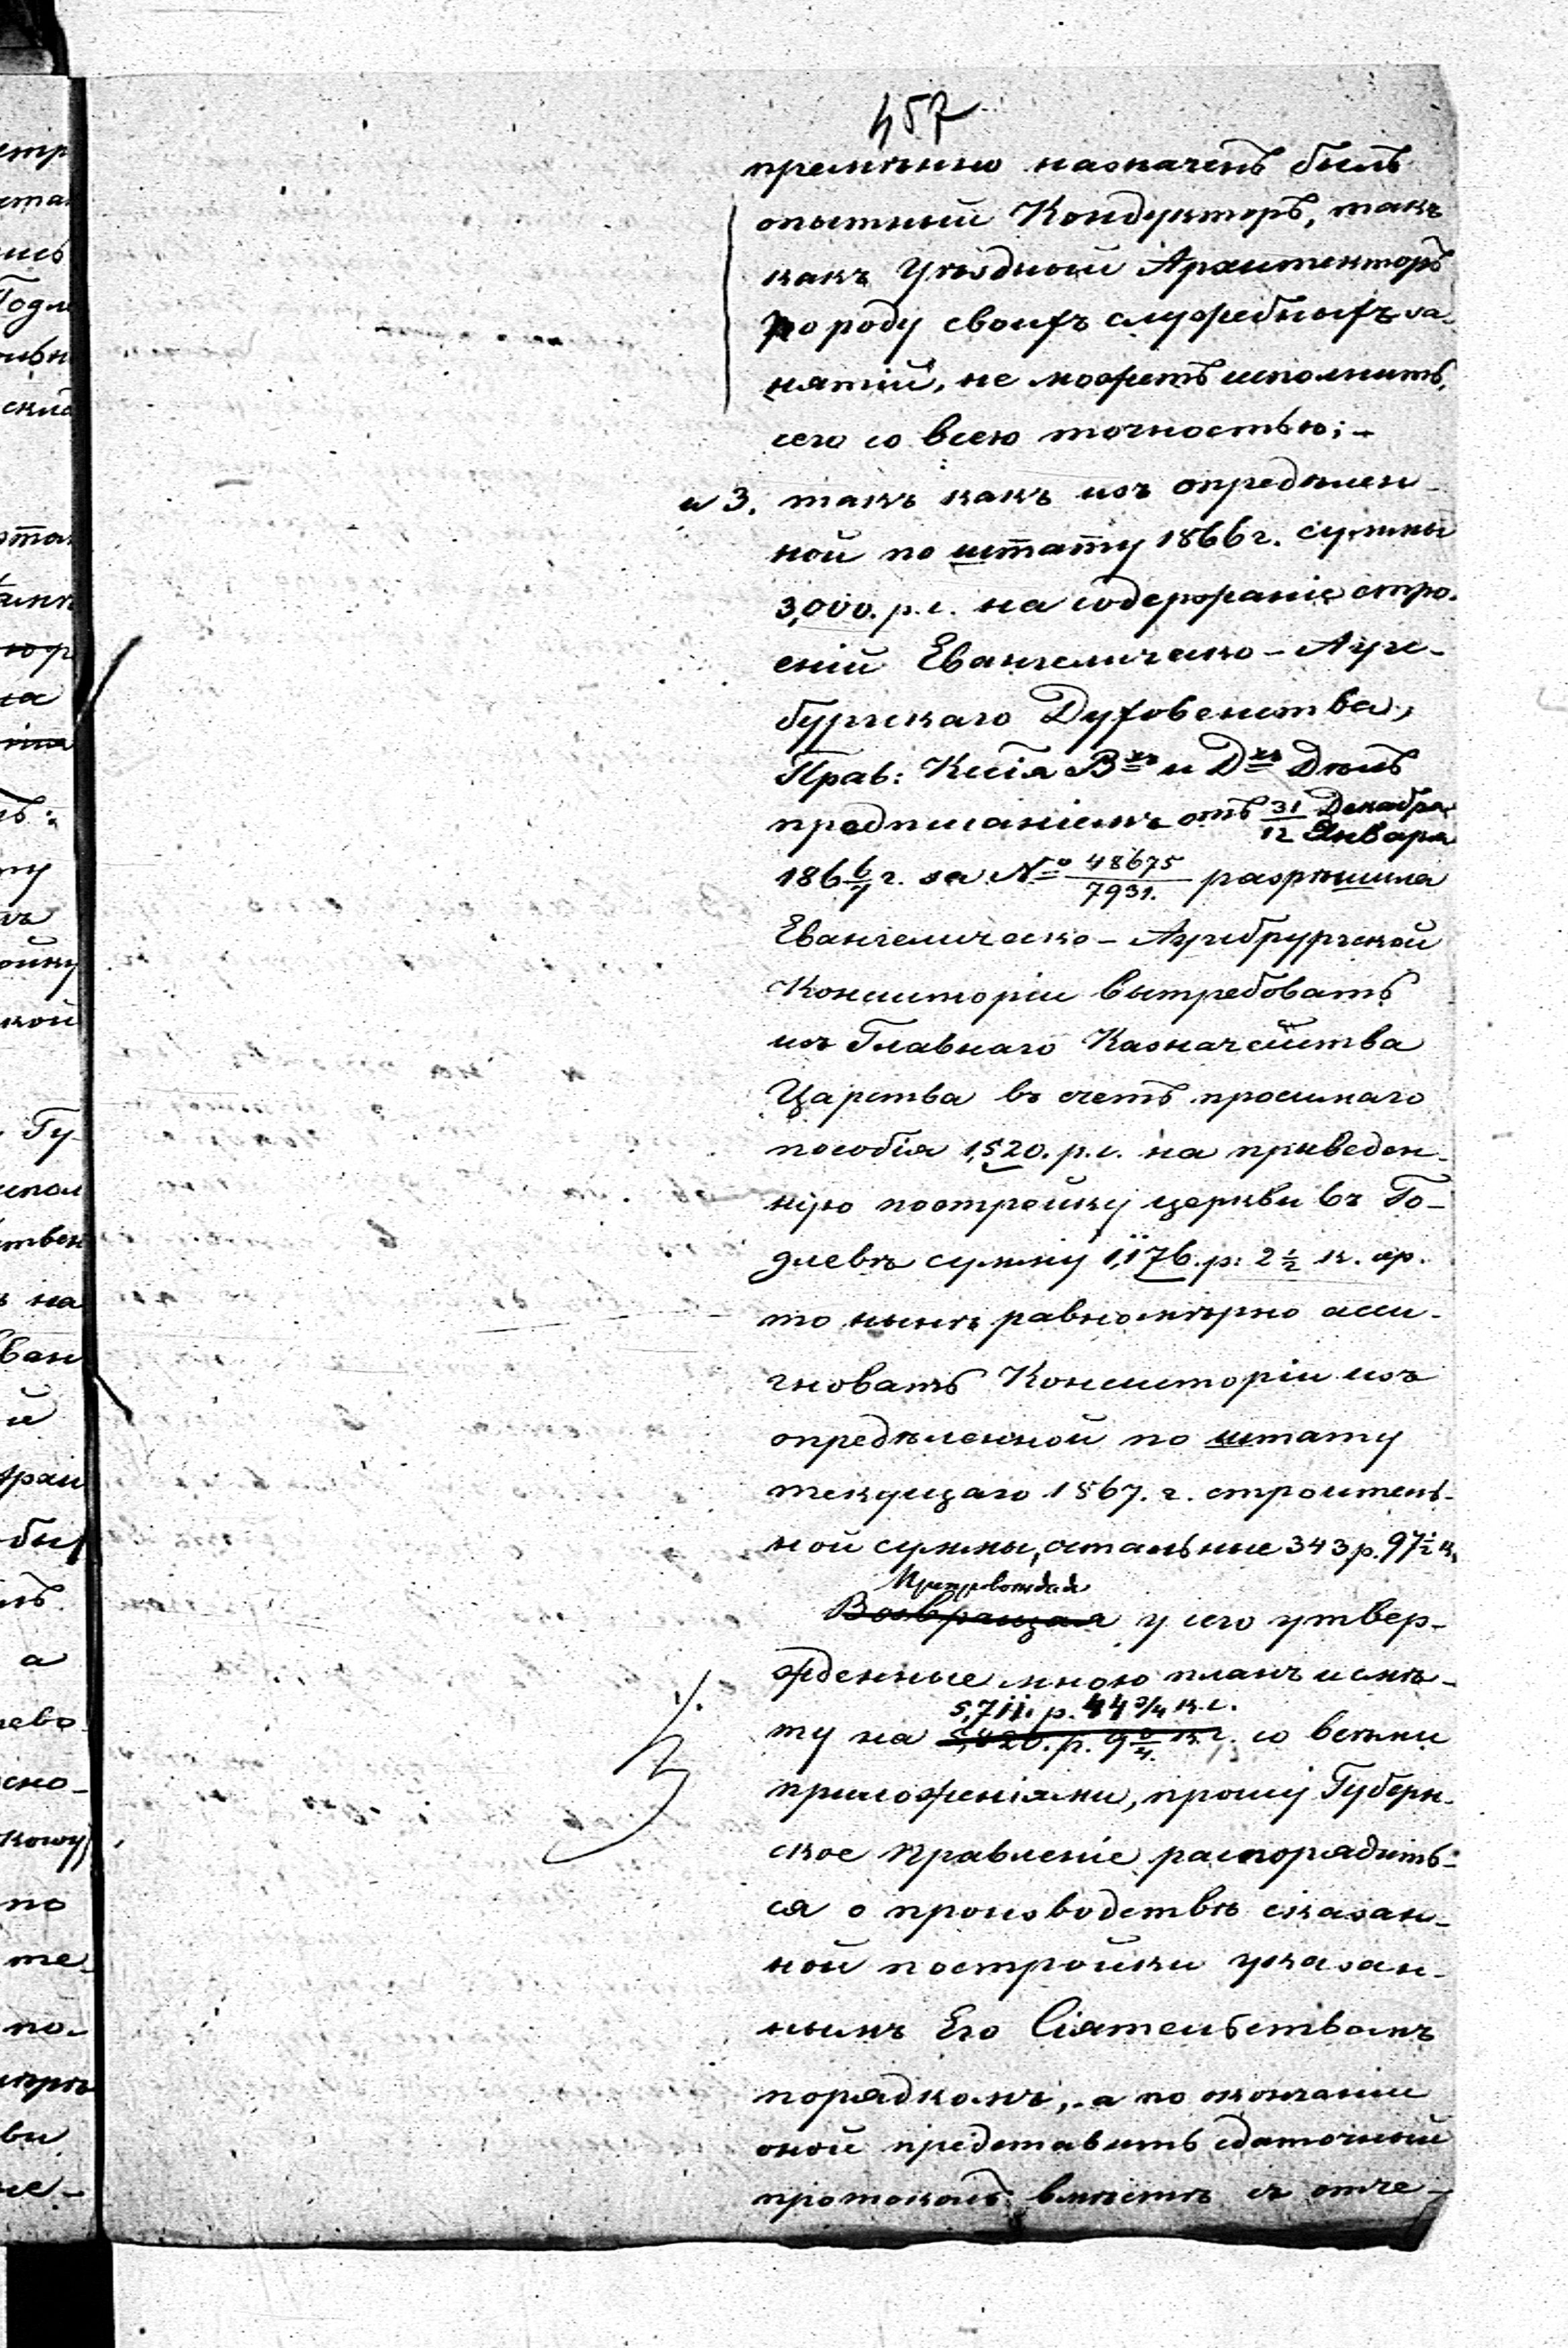 457
премѣнно назначенъ былъ
опытный Кондукторъ, такъ
какъ Уѣздный Архитекторъ
по роду своихъ служебныхъ за-
нятій, не можетъ исполнить
сего со всею точностью;-
и 3. такъ какъ изъ опредѣлен-
ной по штату 1866 г. суммы
3,000. р. с. на содержаніе стро-
еній Евангелическо-Аугс-
бургскаго Духовенства,
Прав: Ксія Вхъ и Дхъ Дѣлъ
предписаніемъ отъ 31/12 Декабря/Января
186 6/7 г. за № 48675/7931. разрѣшила
Евангелическо-Аугсбругской
Консисторіи вытребовать
изъ Главнаго Казначейства
Царства въ счетъ просимаго
пособія 1,520. р. с. на приведен-
ную постройку церкви въ Го-
длевѣ сумму 1,176. р: 2 1/2 к. ср.
то нынѣ равномѣрно асси-
гновать Консисторіи изъ
опредѣленной по штату
текущаго 1867. г. строитель-
ной суммы, остальные 343 р. 97 1/2 к.
Препровождая
Возвращая у сего утвер-
жденные мною планъ и смѣ-
5,711. р. 44 3/4 к. с.
ту на со всѣми
приложеніями, прошу Губерн-
ское Правленіе распорядить-
ся о производствѣ сказан-
ной постройки указан-
нымъ Его Сіятельствомъ
порядкомъ, а по окончаніи
оной представить сдаточный
протоколъ вмѣстѣ съ отче-